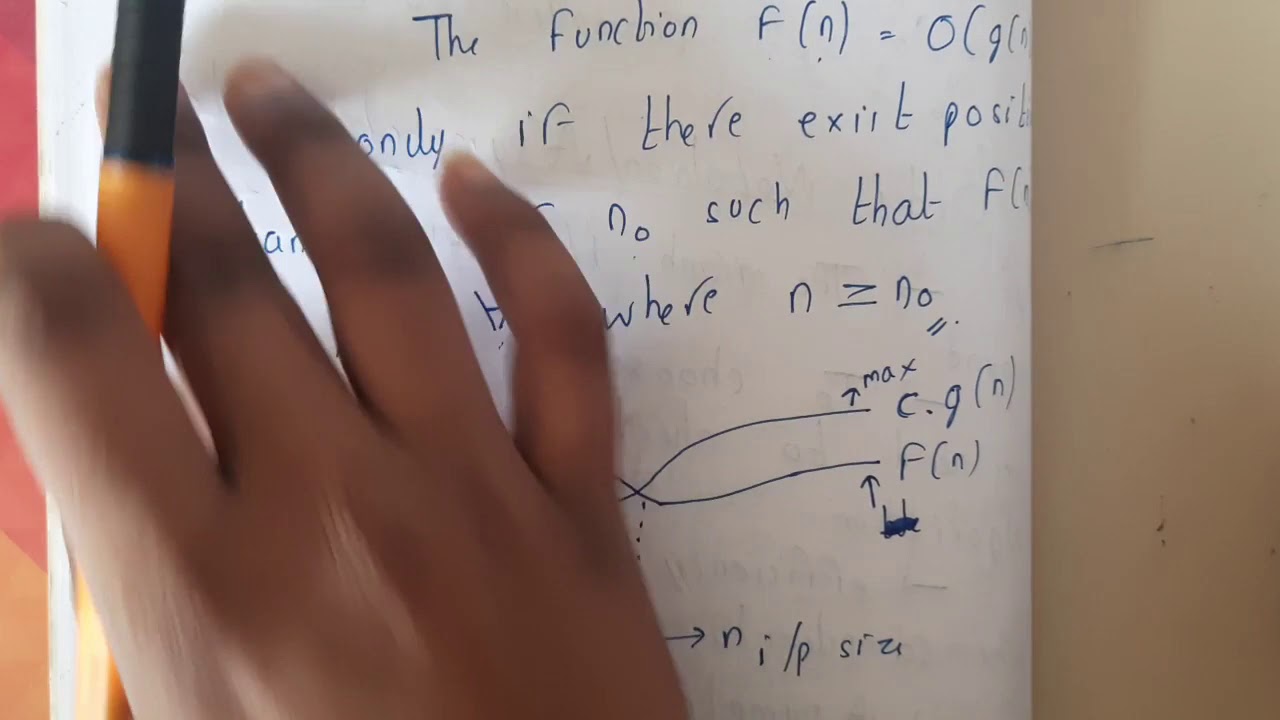 The function F(n) = O(g(n
only if there exiit posit
n₀ such that F(
where n ≥ n₀
max
c.g(n)
F(n)
→ n i/p size